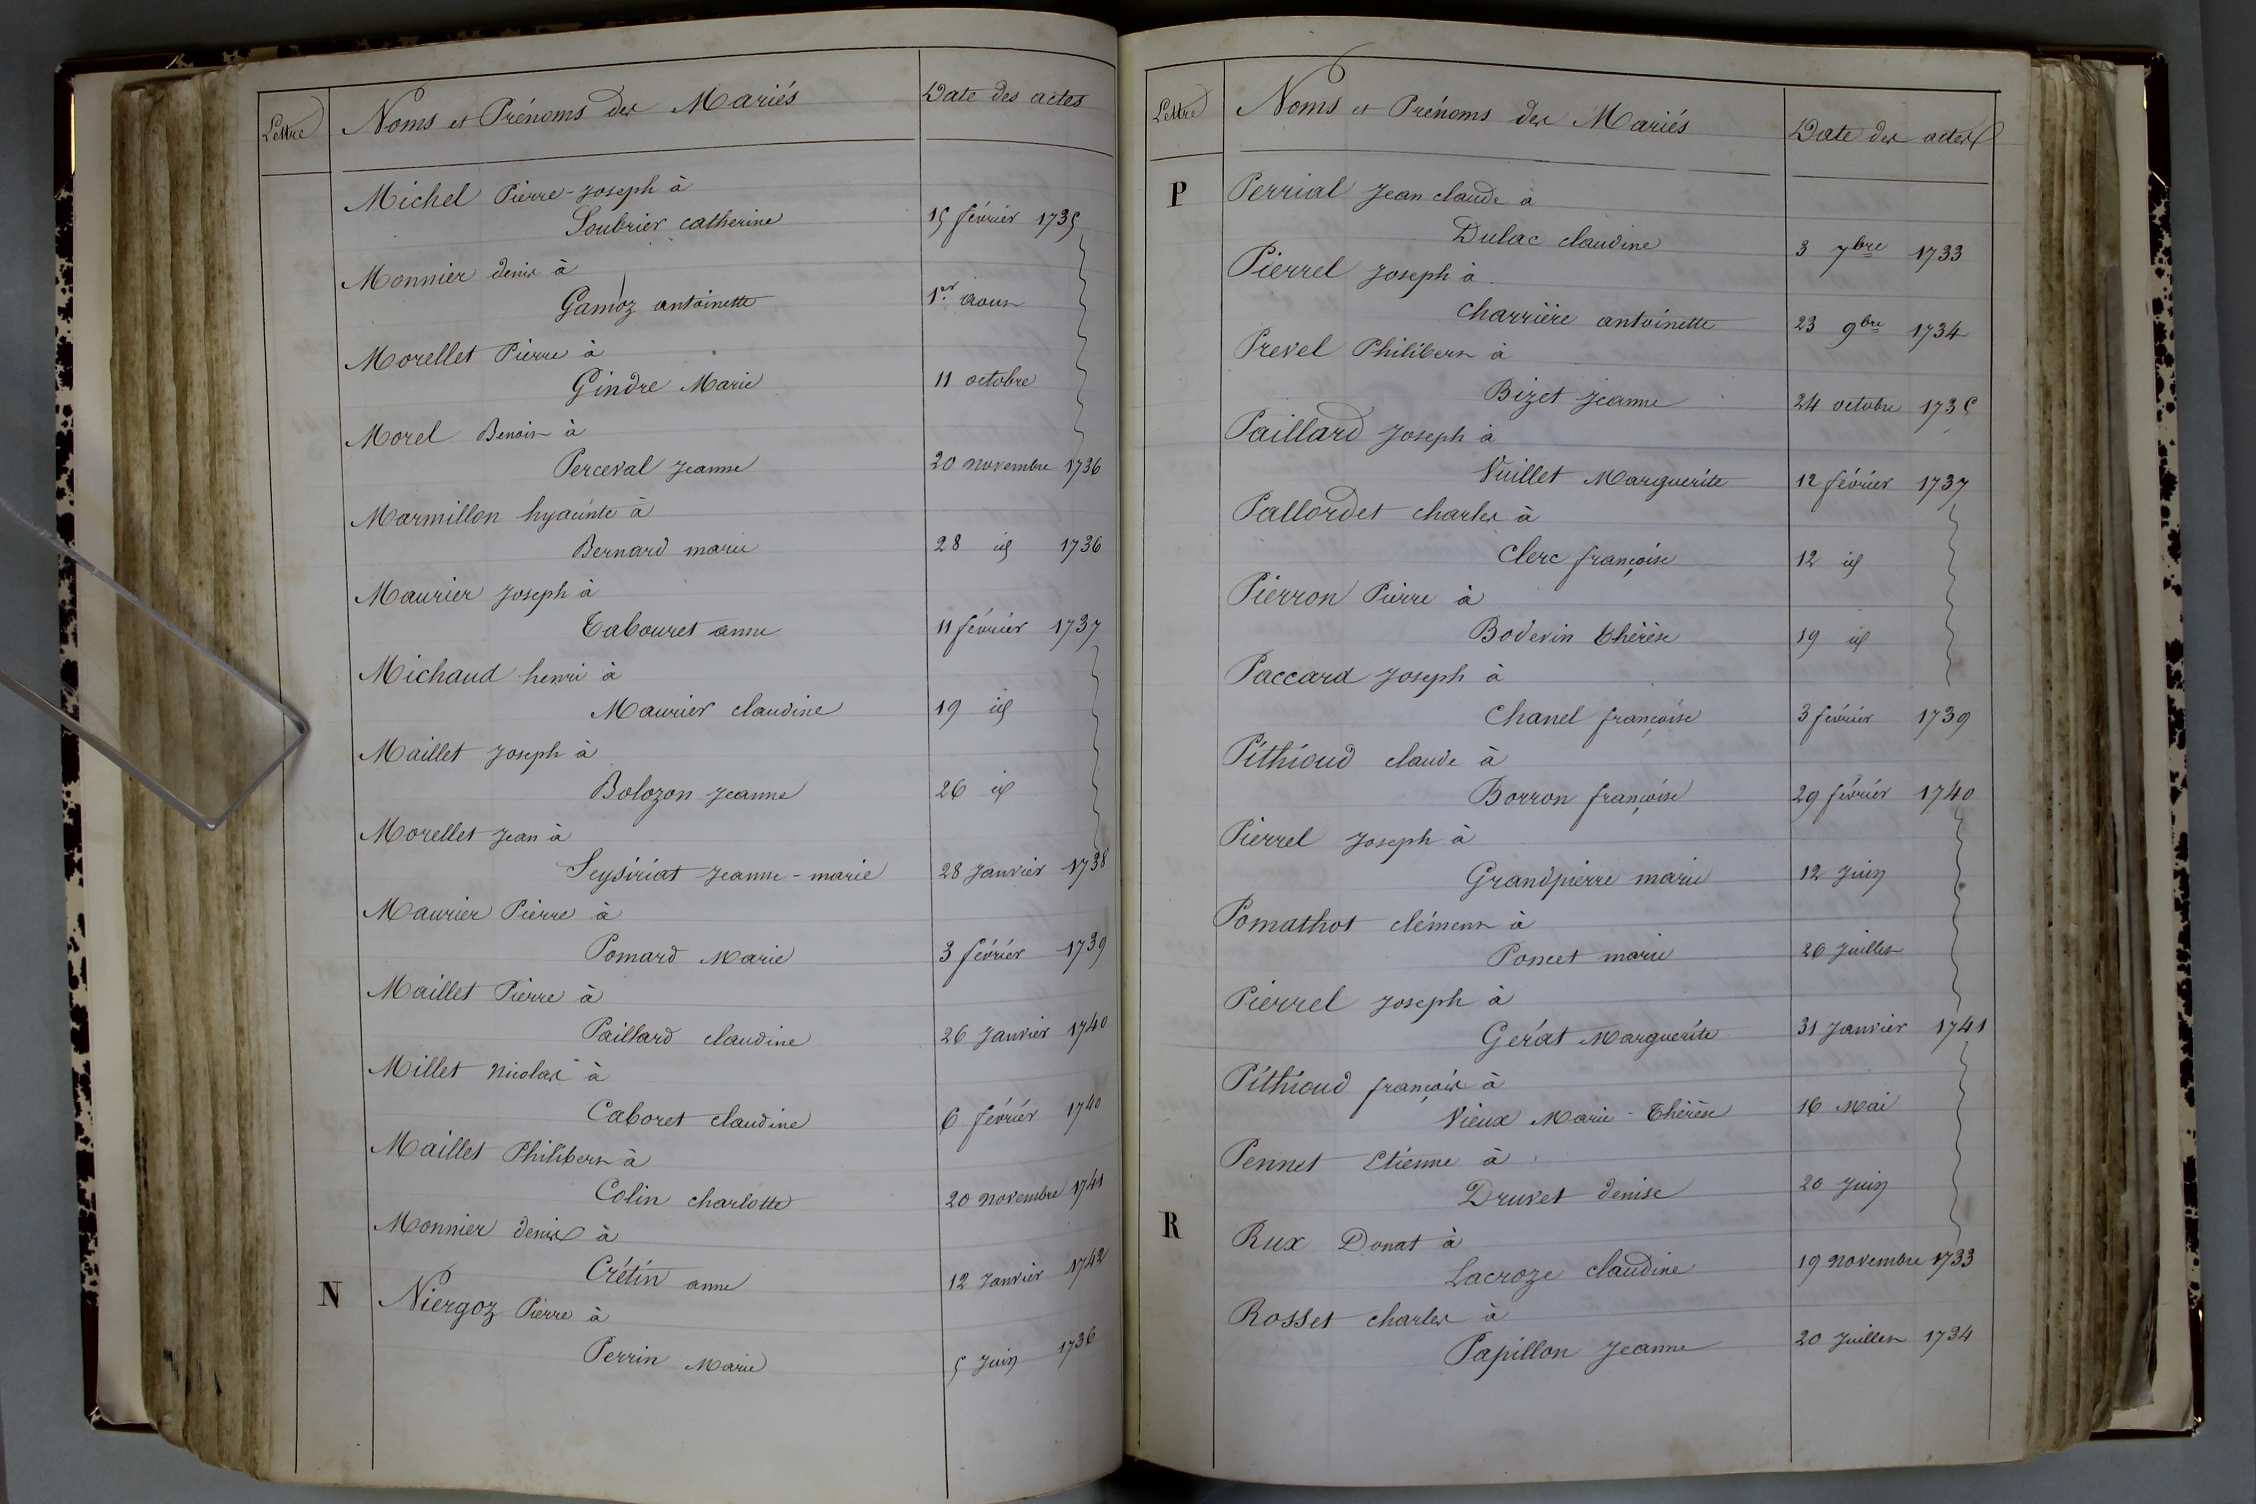 Lettre Noms et Prénoms des Mariés Date des actes
Michel Pierre-Joseph à
Soubrier catherine 15 février 1735
Monnier denis à
Gamoz antoinette 1er aout
Morellet Pierre à
Gindre Marie 11 octobre
Morel Benoit à
Perceval Jeanne 20 novembre 1736
Marmillon hyacinte à
Bernard marie 28 id 1736
Maurier Joseph à
Tabouret anne 11 février 1737
Michaud henri à
Maurier claudine 19 id
Maillet Joseph à
Bolozon Jeanne 26 id
Morellet Jean à
Seysiriat Jeanne-marie 28 Janvier 1738
Maurier Pierre à
Pomard Marie 3 février 1739
Maillet Pierre à
Paillard claudine 26 Janvier 1740
Millet Nicolas à
Caboret claudine 6 février 1740
Maillet Philibert à
Colin charlotte 20 novembre 1741
Monnier denis à
Crétin anne 12 Janvier 1742
N Niergoz Pierre à
Perrin Marie 5 Juin 1736
Lettre Noms et Prénoms des Mariés Date des actes
P Perrial Jean claude à
Dulac claudine 3 7bre 1733
Pierrel Joseph à
Charrière antoinette 23 9bre 1734
Prevel Philibert à
Bizet Jeanne 24 octobre 1735
Paillard Joseph à
Vuillet Marguerite 12 février 1737
Pallordet charles à
Clerc françoise 12 id
Pierron Pierre à
Bodevin Thérèse 19 id
Paccard Joseph à
Chanel françoise 3 février 1739
Pithioud claude à
Borron françoise 29 février 1740
Pierrel Joseph à
Grandpierre marie 12 Juin
Pomathot clément à
Poncet marie 26 Juillet
Pierrel Joseph à
Gerat Marguerite 31 Janvier 1741
Pithioud françois à
Vieux Marie-Thérèse 16 Mai
Pennet Etienne à
Druvet denise 20 Juin
R Rux Donat à
Lacroze claudine 19 novembre 1733
Rosset charles à
Papillon Jeanne 20 Juillet 1734